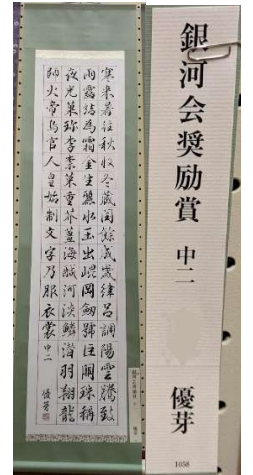 寒来暑往秋收冬蔵閏餘成歳律呂調陽雲騰致
雨露結為霜金生麗水玉出崐岡劔號巨闕珠稱
夜光菓珍李柰菜重芥薑海醎河淡鱗潜羽翔龍
師火帝鳥官人皇始制文字乃服衣裳 中二 優芽
銀河会奨励賞 中二 優芽
1058